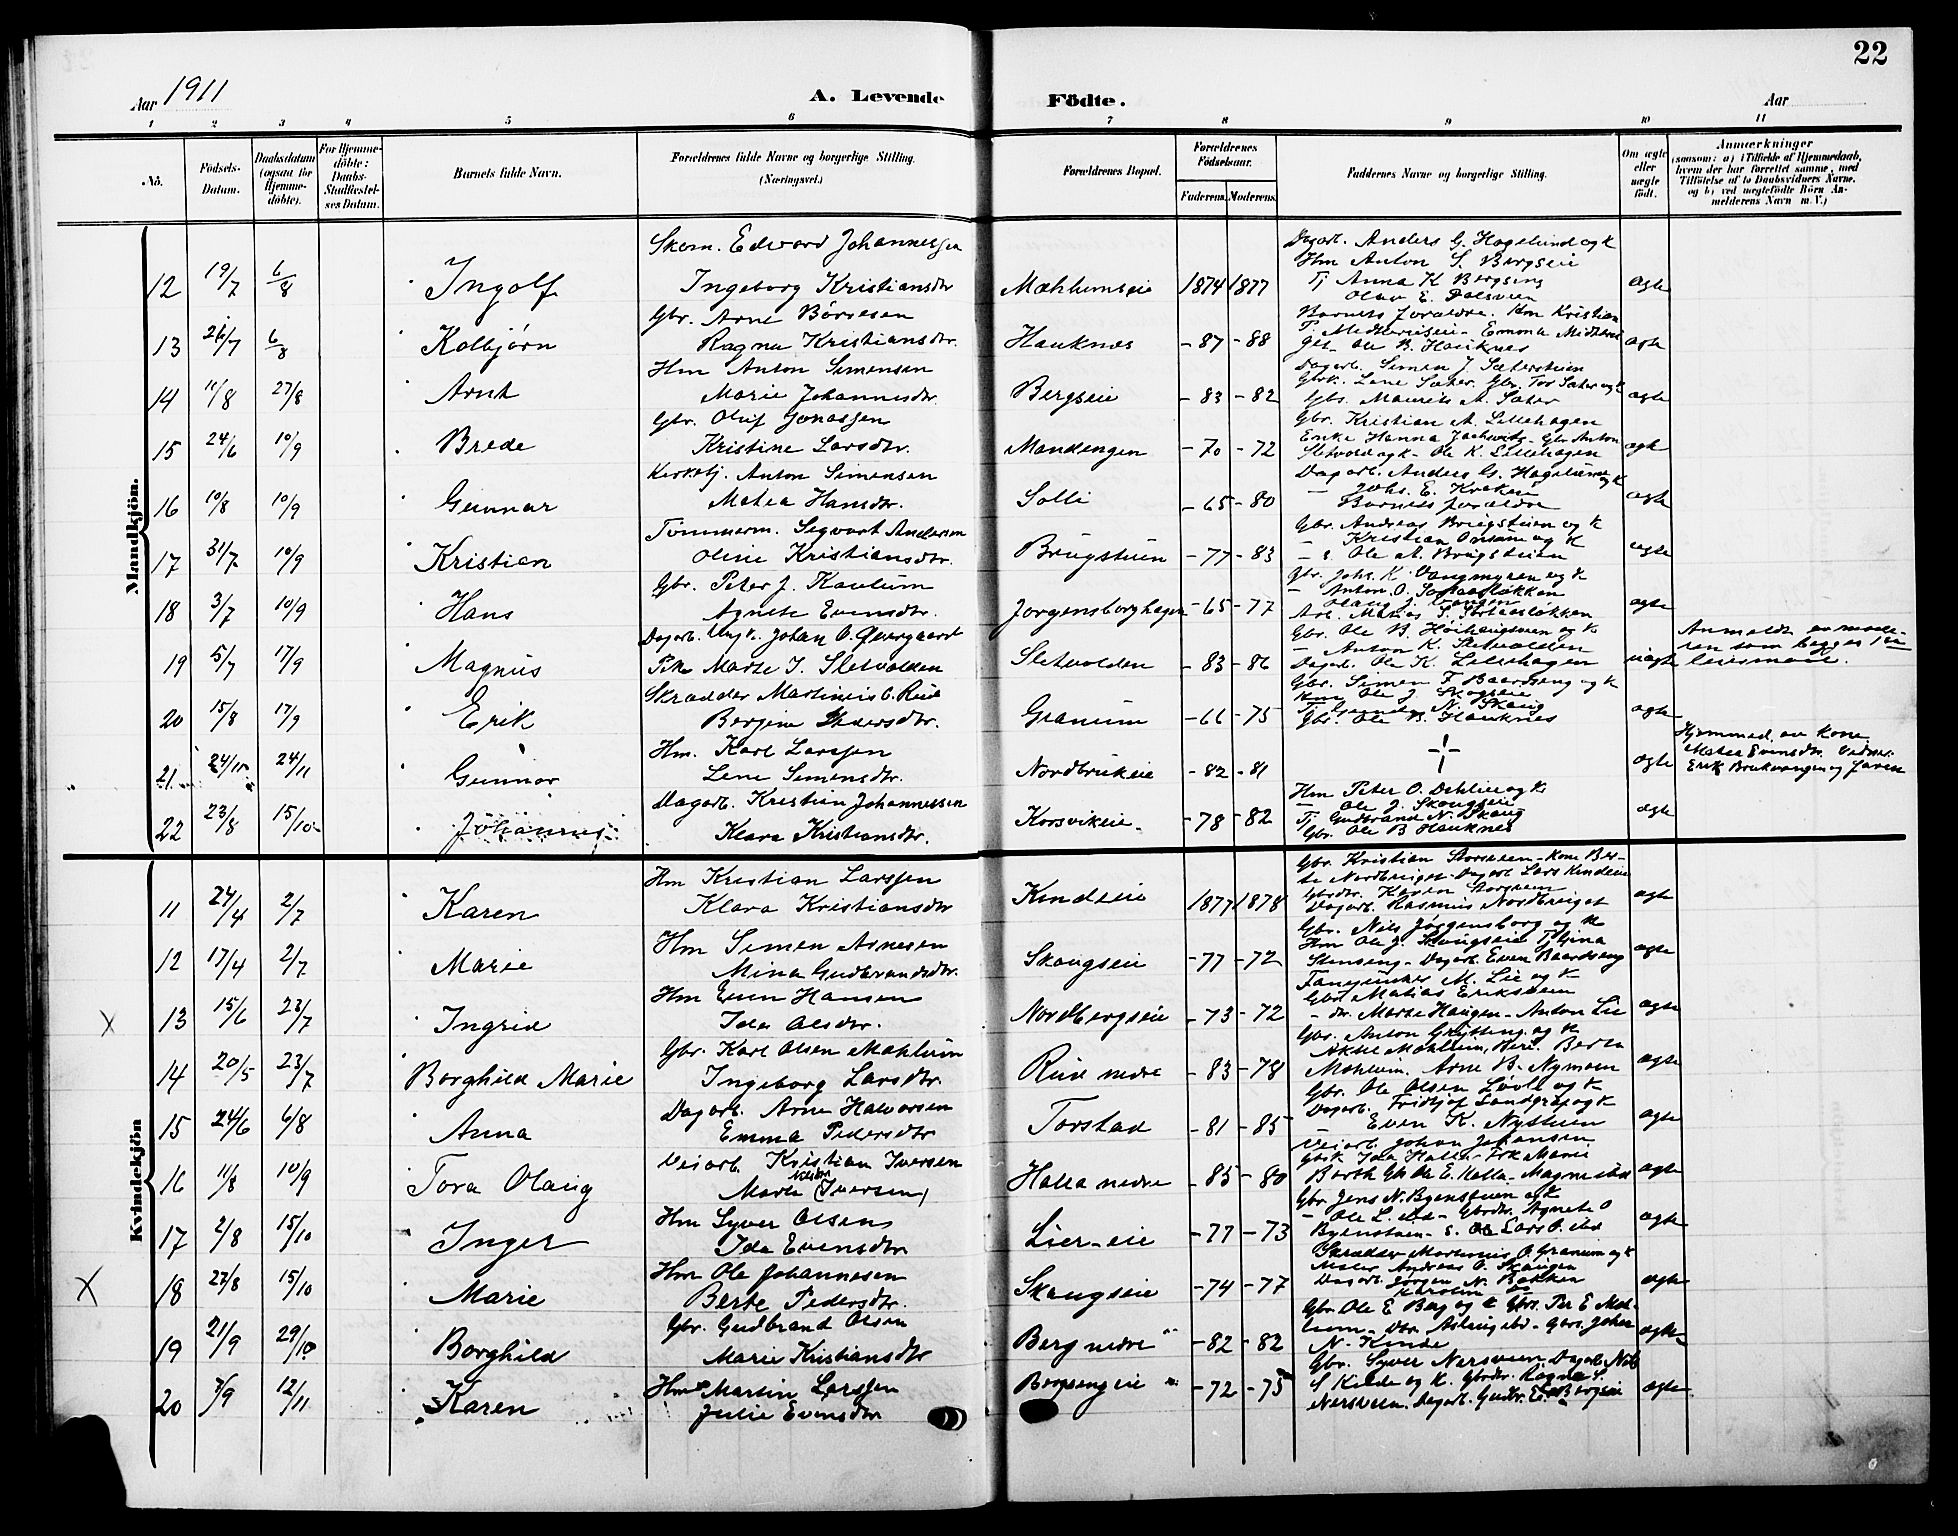 22
Aar 1911
A. Levende Födte.
Aar
1 2 3 4 5 6 7 8 9 10 11
No.
Födsels-Datum.
Daabsdatum (ogsaa for Hjemme-döbte).
For Hjemme-döbte: Daabs-Stadfæstel-ses Datum.
Barnets fulde Navn.
Forældrenes fulde Navne og borgerlige Stilling. (Næringsvei.)
Forældrenes Bopæl.
Forældrenes Födselsaar.
Faderens. Moderens.
Faddernes Navne og borgerlige Stilling.
Om ægte eller uægte födt.
Anmærkninger
(saasom: a) i Tilfælde af Hjemmedaab, hvem der har forrettet samme, med Tilföielse af to Daabsvidners Navne, og b) ved uægtefödte Börn An-melderens Navn m. V.)
Mandkjön.
12 19/7 6/8 Ingolf
Skom. Edvard Johannessen
Ingeborg Kristiansdtr
Mæhlumseie 1874 1877
Dagarb. Anders G. Hagelund og k
Hm Anton S. Bergseie
Tj Anna K Bergseng
Olav E. Dalsveen
ægte
13 26/7 6/8 Kolbjørn
Gbr. Arne Børresen
Ragna Kristiansdtr.
Hauknes -87 -88
Barnets forældre. Hm Kristian
Ole B. Hauknes
ægte
14 11/8 27/8 Arnt
Hm Anton Simensen
Marie Johannesdtr.
Bergseie -83 -82
Dagarb. Simen J. Sæterstuen
Gbrk. Lene Sæter. Gbr. Tor Sæter og k
Gbs. Maurits A. Sæter
ægte
15 24/6 10/9 Brede
Gbr. Oluf Jonassen
Kristine Larsdtr.
Mandengen -70 -72
Gbr. Kristian A. Lillehagen
Enke Hanna - Gbr Anton
Sletvold og k - Ole K. Lillehagen
ægte
16 10/8 10/9 Gunnar
Kirketj. Anton Simensen
Matea Hansdtr.
Solli -65 -80
Dagarb. Anders G. Hagelund og k
- Johs. E. Kraken
Barnets forældre
ægte
17 31/7 10/9 Kristian
Tömmerm. Segvart Andersen
Oline Kristiansdtr.
Brugstuen -77 -83
Gbr. Andreas Brugstuen og k
- Kristian Onsum og k
- s. Ole A. Brugstuen
ægte
18 3/7 10/9 Hans
Gbr. Peter J. Kavlum
Agnete Evensdtr.
Jorgensborghagen -65 -77
Gbr. Johs. K. Vangmyren og k
- Anton O. Sortaasløkken
Arb. Matias S. Sortaasløkken
ægte
19 5/7 17/9 Magnus
Dagarb. Ungk. Johan O. Øvergaard
Pike Marte J. Sletvolden
Sletvolden -83 -86
Gbr. Ole B. Høihaugsveen og k
- Anton K. Sletvolden
Dagarb. Ole K. Lillehagen
uægte
Anmeldt av mode-
ren som begges 1ste
leiermaal.
20 15/8 17/9 Erik
Skrædder Martinius O. Rue
Bergine Pedersdtr.
Granum -66 -75
Gbr. Simen F Baardseng og k
Hm Ole J. Skogseie
Tj N. Skaug
Gbr. Ole B. Hauknes
ægte
21 24/11 24/11 Gunnar
Hm. Karl Larssen
Lene Simensdtr.
Nordbrukeie -82 -81
ægte
Hjemmed. av kone
Matea Evensdtr. Vidner:
Erik Brukvangen og faren
22 23/8 15/10 Johannes
Dagarb. Kristian Johannessen
Klara Kristiansdtr.
Korsvikeie -78 -82
Hm Peter O. Dehlieie og k
- Ole J. Skaugseie
Tj Gudbrand N. Skaug
Gbr. Ole B Hauknes
ægte
Kvindekjön
11 24/4 2/7 Karen
Hm Kristian Larssen
Klara Kristiansdtr
Kindeie 1877 1878
Gbr. Kristian Storsveen - Kone Ber-
te Nordbruget - Dagarb. Lars Kindeie
Gbrdtr. Karen Storsveen
Dagarb. Rasmus Nordbruget
ægte
12 17/4 2/7 Marie
Hm Simen Arnesen
Mina Gudbrandsdtr.
Skaugseie -77 -72
Gbr. Nils Jørgensborg og k
Hm Ole J. Skaugseie Tj Gina
Stenseng - Dagarb. Even Baardseng
ægte
X 13 15/6 23/7 Ingrid
Hm Even Hansen
Ida Olsdtr.
Nordbergseie -73 -72
Fanejunker M. Lie og k
Gbr. Matias Eriksveen
- dtr. Marte Haugen - Anton Lie
ægte
14 20/5 23/7 Borghild Marie
Gbr. Karl Olsen Mæhlum
Ingeborg Larsdtr.
Rue nedre -83 -78
Gbr. Anton Grytting og k
Aksel Mæhlum,
Mæhlum. Arne B. Nymoen
ægte
15 24/6 6/8 Anna
Dagarb. Arne Halvorsen
Emma Pedersdtr
Torstad -81 -85
Gbr. Ole Olsen Lövle og k
Dagarb. Fridtjof Landgraf og k
- Even K. Nystuen
ægte
16 11/8 10/9 Tora Olaug
Veiarb. Kristian Iversen
Marte (Iversen)
Halla nedre -85 -80
Veiarb. Johan Johansen
Gbrk Ida Halla - Frk Marie
Barth Gbr Ole E. Halla - Magne ibd
ægte
17 2/8 15/10 Inger
Hm Syver Olsen
Ida Evensdtr
Lier-eie -77 -73
Gbr. Jens N. Byenstuen og k
- Ole L. ibd - Gbrdtr. Agnete O
Byenstuen - s. Lars O. ibd
ægte
X 18 27/8 15/10 Marie
Hm Ole Johannesen
Berte Pedersdtr.
Skaugseie -74 -77
Skrædder Martinius O. Granum og k
Andreas O. Skaugen
Dagarb. Jörgen N. Bakken
Karoline
ægte
19 21/9 29/10 Borghild
Gbr. Gudbrand Olsen
Marie Kristiansdtr
Berg nedre -82 -82
Gbr. Ole E Berg og k Gbrs. Per E Mæh-
lum - Dtr. Aslaug ibd - Gbrs. Johan
N. Kinde
ægte
20 3/9 12/11 Karen
Hm Martin Larssen
Julie Evensdtr
Bergseng eie -72 -75
Gbr. Syver Nersveen. Dagarb. Nils
S Kinde og k. Gbrdtr. Ragna S.
Nersveen. Dagarb. Gudbr. E. Bergseie
ægte